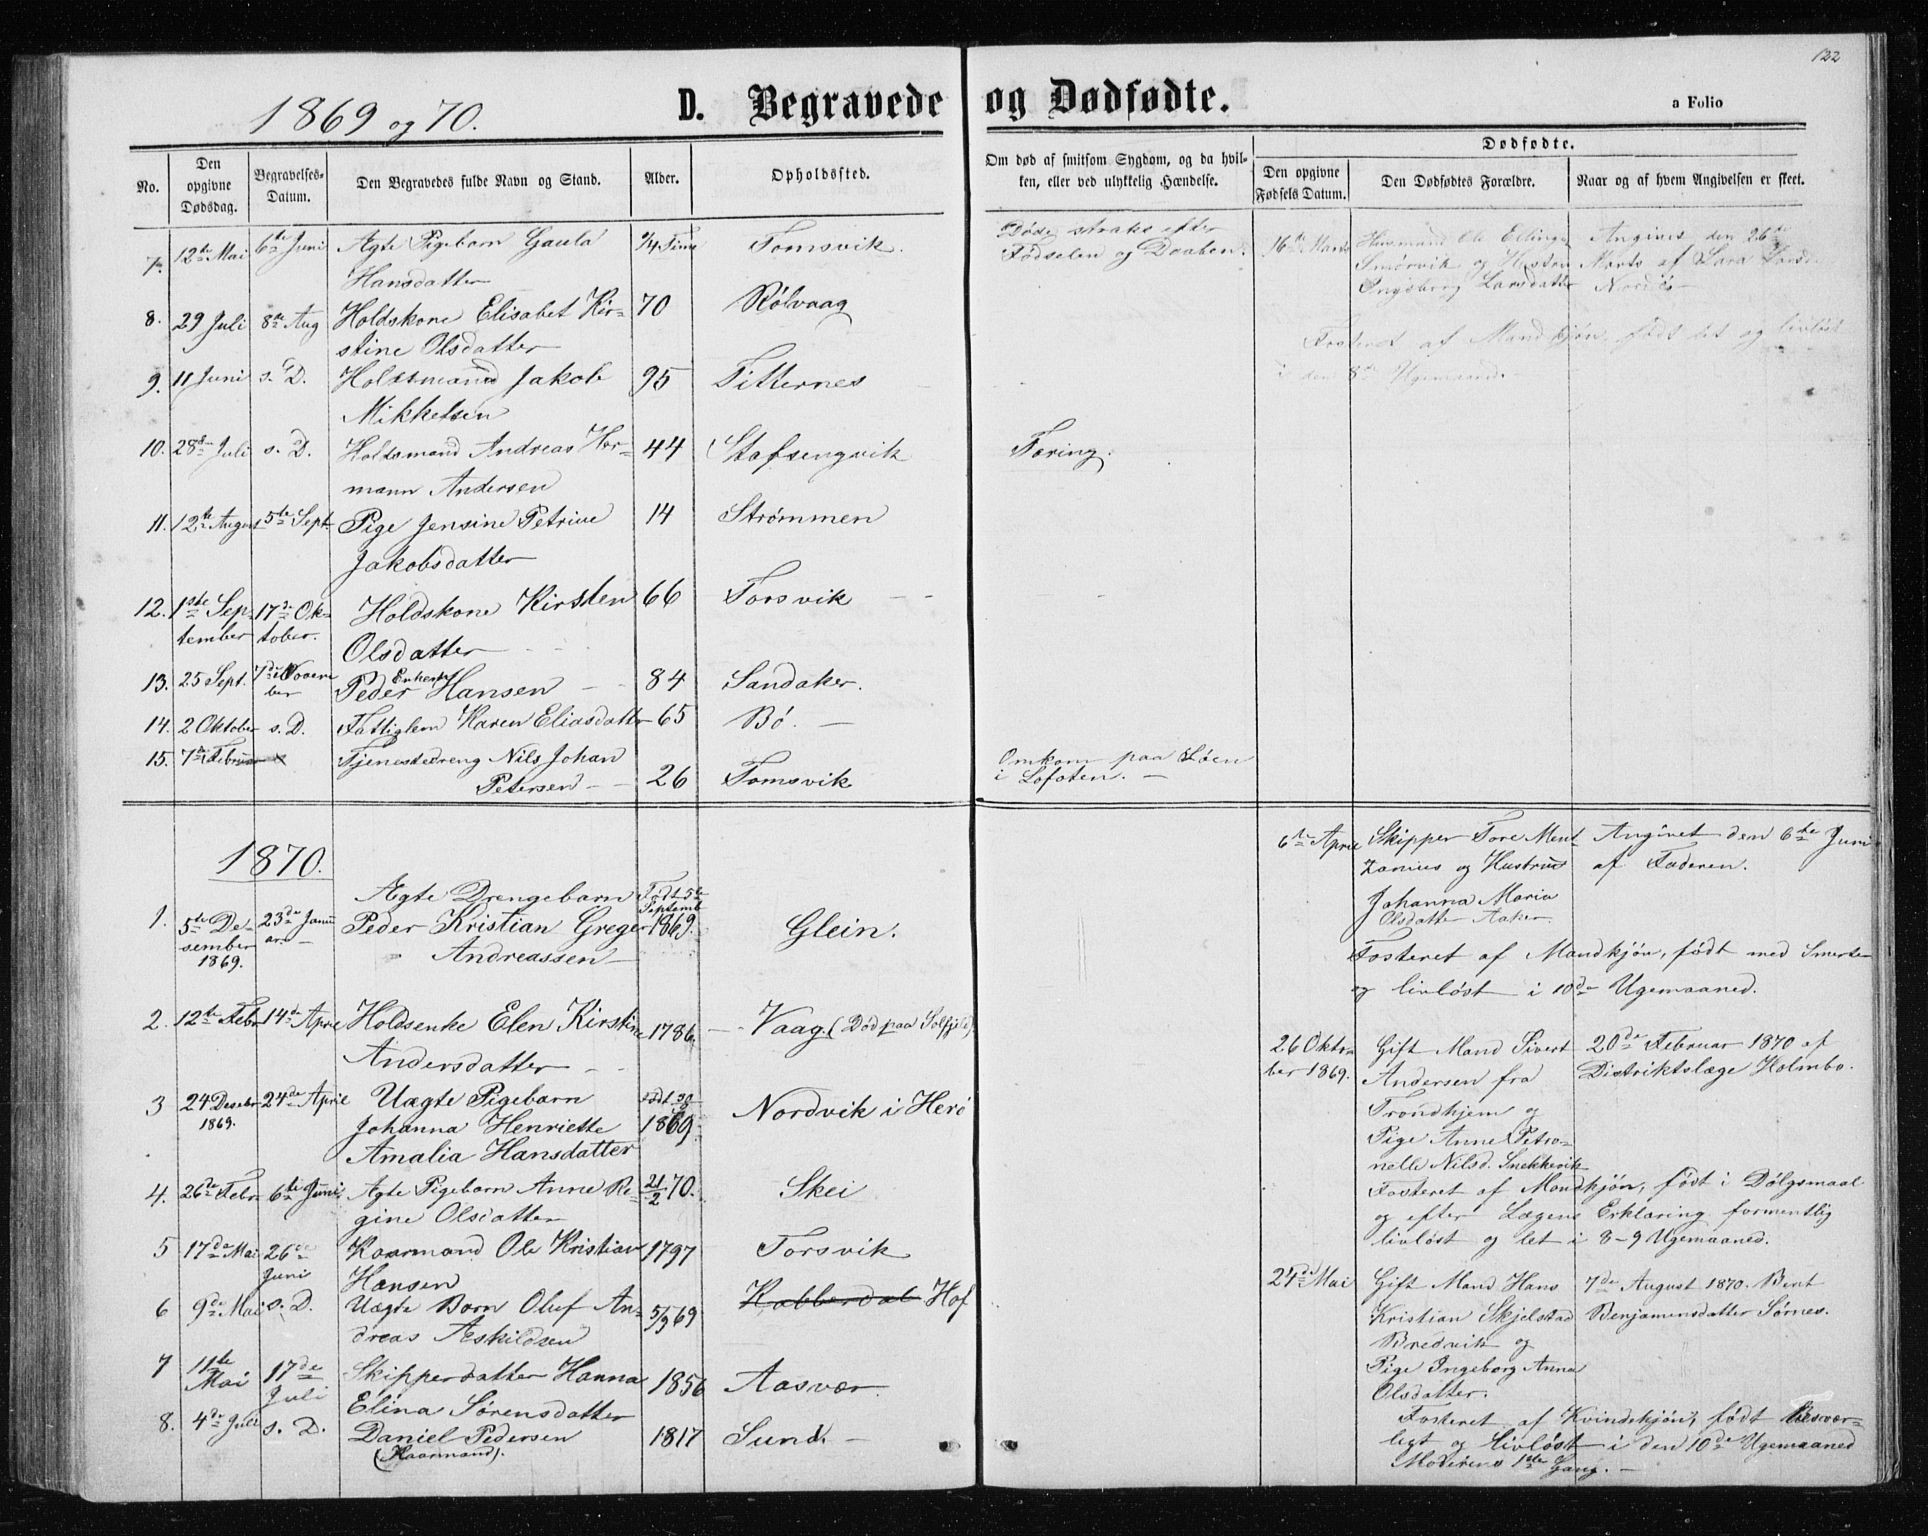 122
1869 og 70.
D. Begravede og Dødfødte.
a Folio
No.
Den opgivne Dødsdag.
Begravelses-Datum.
Den Begravedes fulde Navn og Stand.
Alder.
Opholdssted.
Om død af smitsom Sygdom, og da hvil-
ken, eller ved ulykkelig Hændelse.
Dødfødte.
Den opgivne Fødsels Datum.
Den Dødfødtes Forældre.
Naar og af hvem Angivelsen er skeet.
7. 12te Mai 6te Juni Ægte Pigebarn Gaula ¼ Time Tomsvik.
Hansdatter
Døde straks efter
Fødselen og Daaben.
8. 29 Juli 8de Aug Holdskone Elisabet Kir- 70 Rølvaag
stine Olsdatter
9. 11 Juni s. D. Holdsmand Jakob 95 Titternes
Mikkelsen
10. 28de Juli s. D. Holdsmand Andreas Her- 44 Stafsengvik Tæring.
mann Andersen
11. 12te August 5te Sept. Pige Jensine Petrine 14 Strømmen
Jakobsdatter
12. 1ste Sep- 17de Ok- Holdskone Kirsten 66 Forsvik
tember tober. Olsdatter
13. 25 Sept. 7de Novem
ber Enkem. Peder Hansen 84 Sandaker.
14. 2 Oktober s. D. Fattiglem Karen Eliasdatter 65 Bø.
15. 7de Februar Tjenestedreng Nils Johan
Petersen 26 Tomsvik
Omkom paa Søen
i Lofoten.
16de Marts Husmand Ole Ellings Angives den 26de
Smørvik og Hustru Marts af Sara Larsd.
Ingeborg Larsdatter Nordøs
Fosteret af Mandkjøn, født let og livløst
i den 8de Ugemaaned.
1870.
1. 5te De-
sember
1869. 23de Janu
ar. Ægte Drengebarn
Peder Kristian Greger
Andreassen Født 5te
Septemb
1869. Glein.
2. 12te Febr 14de April Holdsenke Elen Kirstine 1786. Vaag. (Død paa Solfjeld)
Andersdatter
3 24 Desebr
1869. 24de April Uægte Pigebarn
Johanna Henriette
Amalia Hansdatter 1869 Nordvik i Herø
4. 26de Febr 6te Juni Ægte Pigebarn Anne Re- 21/2 70. Skei
gine Olsdatter
5 17de Mai 26de
Juni Kaarmand Ole Kristian 1797 Forsvik
Hansen
6 9de Mai s. D. Uægte Barn Oluf An- 5/3 69 Kobberdal Hof
dreas Aeskildsen
7 11te
Mai 17de
Juli Skipperdatter Hanna 1856 Aasvær
Elina Sørensdatter
8. 4de Juli s. D. Daniel Pedersen 1817 Sund.
(Kaarmand).
6te April Skipper Tore Ment- Angivet den 6te Juni
zonius og Hustrue af Faderen.
Johanna Maria
Olsdatter Aaker.
Fosteret af Mandkjøn, født med Smerte
og livløst i 10de Ugemaaned.
26 Okto-
ber 1869. Gift Mand Sivert 20de Februar 1870 af
Andersen fra Distriktslæge Holmbo.
Trondhjem og
Pige Anne Petro-
nelle Nilsd. Snekkevik
Fosteret af Mandkjøn, født i Dølgsmaal
og efter Lægens Erklæring formentlig
livløst og let i 8-9 Ugemaaned.
24de Mai Gift Mand Hans 7de August 1870. Bent
Kristian Skjelstad Benjamensdatter Sørnes.
Bredvik og
Pige Ingeborg Anna
Olsdatter.
Fosteret af Kvindekjøn, født besvær-
ligt og livløst i den 10de Ugemaaned
Moderens 1ste Gang.